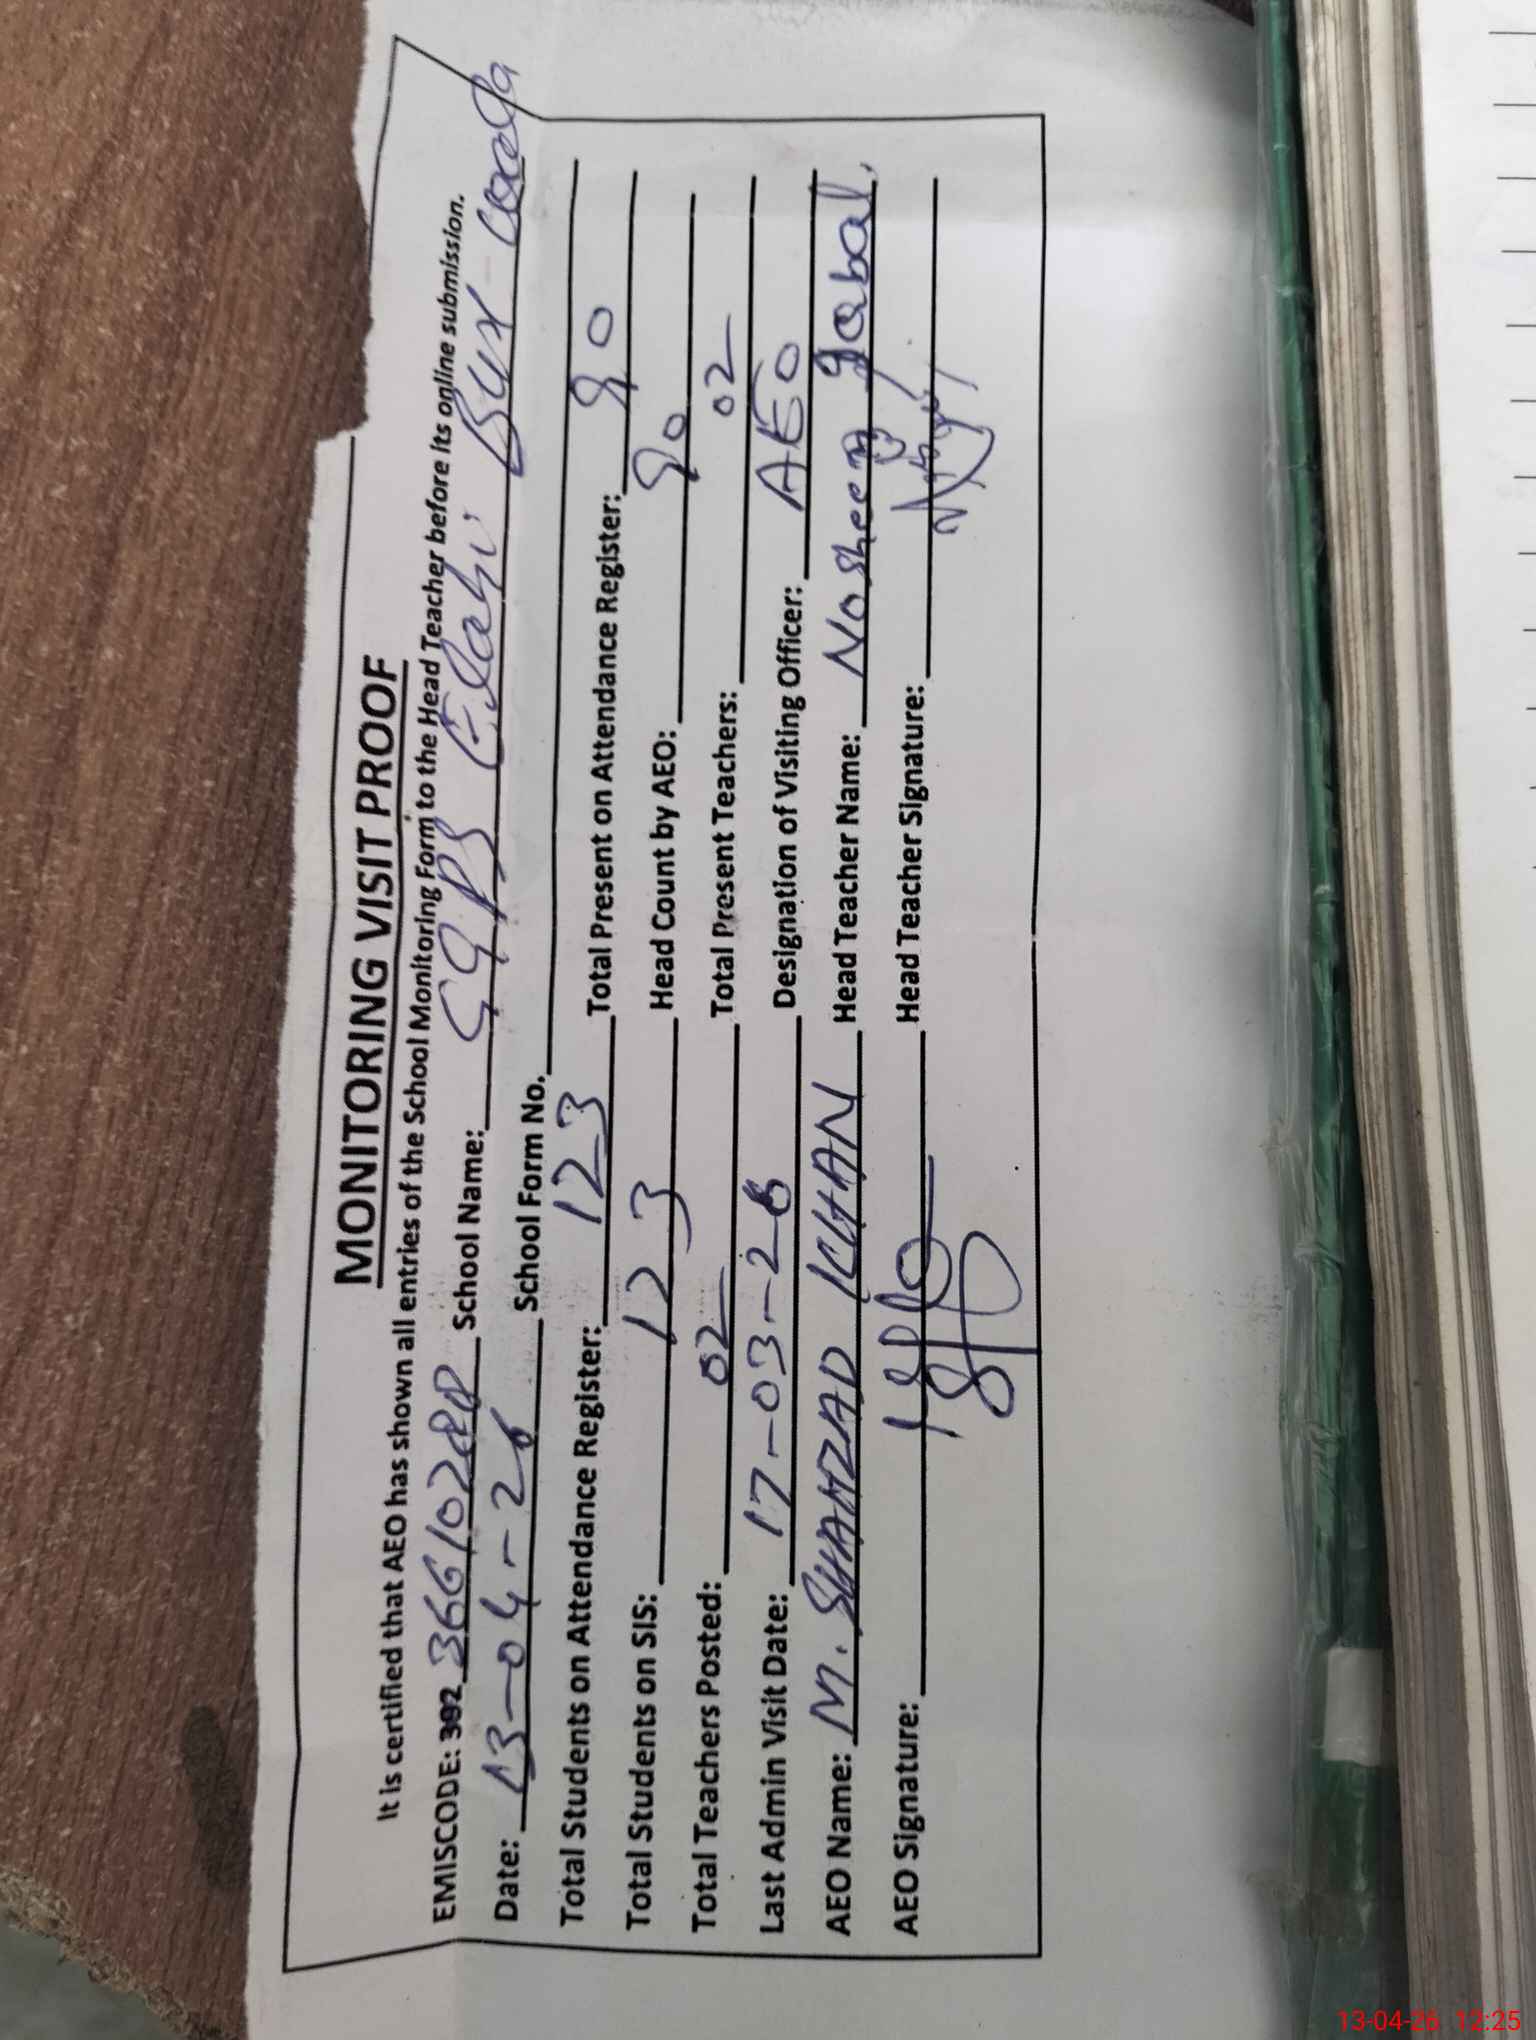 MONITORING VISIT PROOF
It is certified that AEO has shown all entries of the School Monitoring Form to the Head Teacher before its online submission.
EMISCODE: 36610288 School Name: GGPS Elahi Bux
Date: 13-04-26 School Form No.
Total Students on Attendance Register: 123 Total Present on Attendance Register: 90
Total Students on SIS: 123 Head Count by AEO: 90
Total Teachers Posted: 02 Total Present Teachers: 02
Last Admin Visit Date: 17-03-26 Designation of Visiting Officer: AEO
AEO Name: M. SHAHZAD KHAN Head Teacher Name: Nosheen
AEO Signature: Head Teacher Signature:
13-04-26 12:25